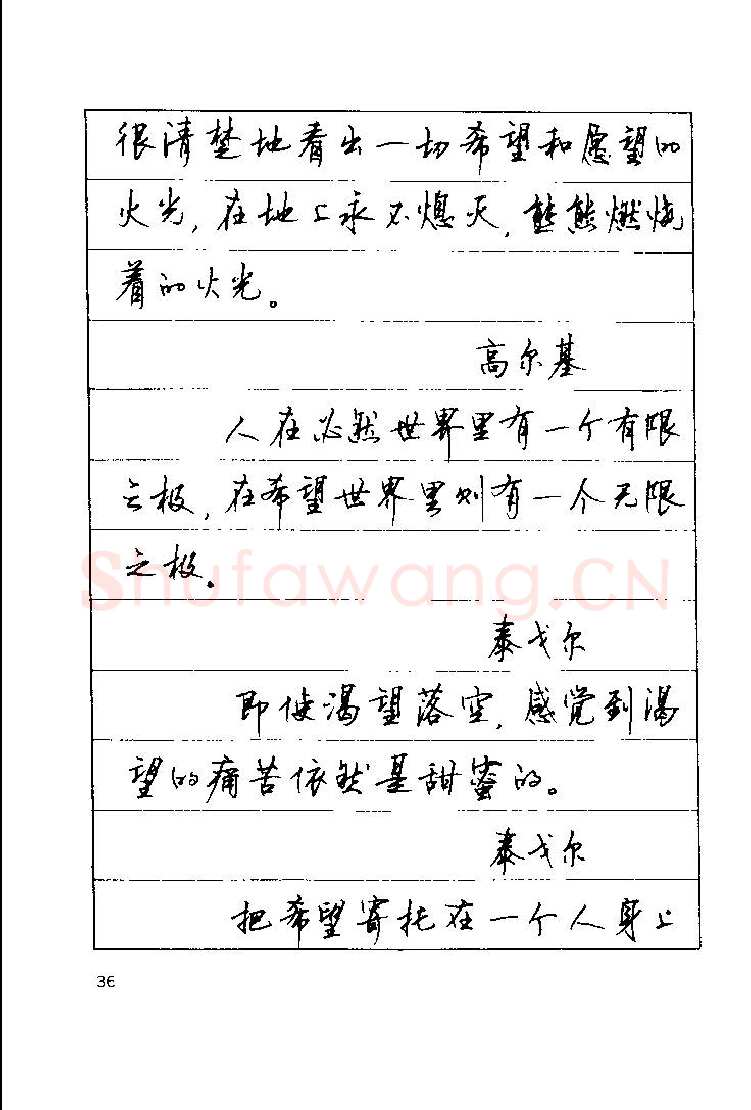 很清楚地看出一切希望和愿望的
火光，在地上永不熄灭，熊熊燃烧
着的火光。
高尔基
人在必然世界里有一个有限
之极，在希望世界里则有一个无限
之极。
Shufawang.CN
泰戈尔
即使渴望落空，感觉到渴
望的痛苦依然是甜蜜的。
泰戈尔
把希望寄托在一个人身上
36